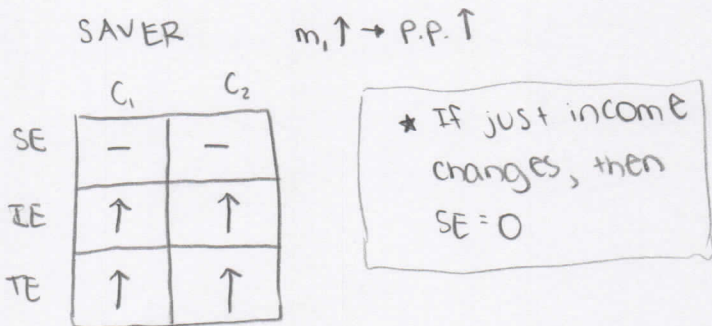 SAVER m₁↑ → P.P. ↑
C₁ C₂
SE – –
IE ↑ ↑
TE ↑ ↑
★ If just income
changes, then
SE = 0